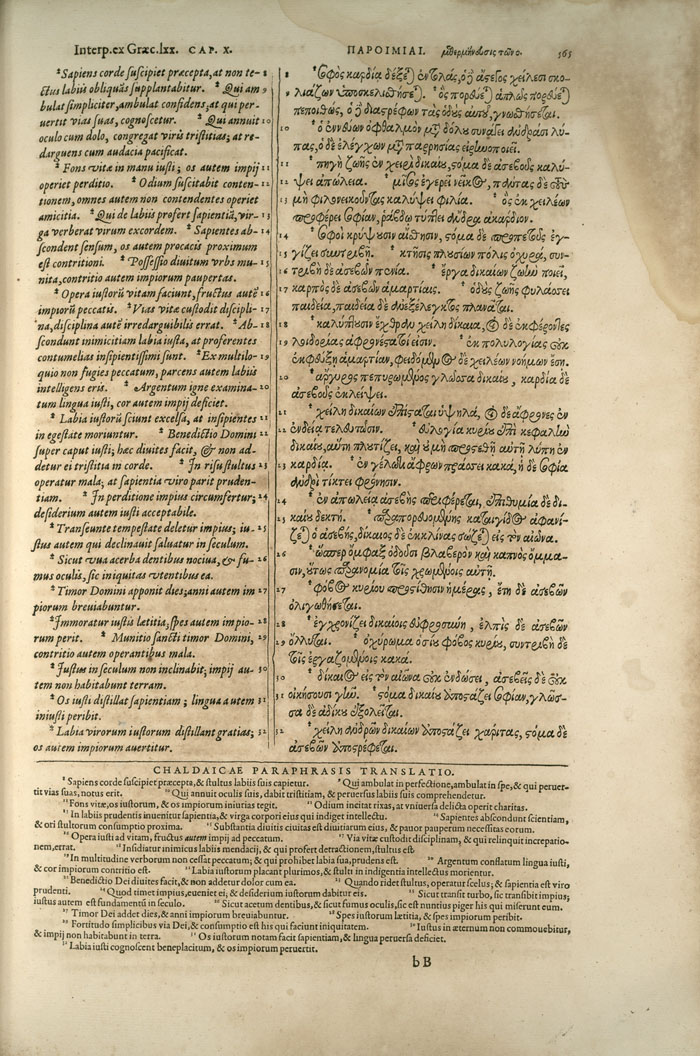 Interp. ex Græc. lxx. CAP. X.
ΠΑΡΟΙΜΙΑΙ.
565
Sapiens corde suscipiet præcepta, at non te- 8
ctus labiis obliquãs supplantabitur. Qui am 9
bulat simpliciter, ambulat confidens, at qui per-
uertit vias suas, cognoscetur. Qui annuit 10
oculo cum dolo, congregat viris tristitias; at re-
darguens cum audacia pacificat.
Fons vitæ in manu iusti; os autem impij 11
operiet perditio. Odium suscitabit conten- 12
tionem, omnes autem non contendentes operiet
amicitia. Qui de labiis profert sapientiã, vir- 13
ga verberat virum excordem. Sapientes ab- 14
scondent sensum, os autem procacis proximum
est contritioni. Possessio diuitum vrbs mu- 15
nita, contritio autem impiorum paupertas.
Opera iustorũ vitam faciunt, fructus autẽ 16
impiorũ peccatis. Vias vitæ custodit discipli- 17
na, disciplina autẽ irredarguibilis errat. Ab- 18
scondunt inimicitiam labia iusta, at proferentes
contumelias insipientissimi sunt. Ex multilo- 19
quio non fugies peccatum, parcens autem labiis
intelligens eris. Argentum igne examina- 20
tum lingua iusti, cor autem impij deficiet.
Labia iustorũ sciunt excelsa, at insipientes 21
in egestate moriuntur. Benedictio Domini 22
super caput iusti; hæc diuites facit, & non ad-
detur ei tristitia in corde. In risu stultus 23
operatur mala; at sapientia viro parit pruden-
tiam. In perditione impius circumfertur; 24
desiderium autem iusti acceptabile.
Transeunte tempestate deletur impius; iu- 25
stus autem qui declinauit saluatur in seculum.
Sicut vua acerba dentibus nociua, & fu- 26
mus oculis, sic iniquitas vtentibus ea.
Timor Domini apponit dies; anni autem im 27
piorum breuiabuntur.
Immoratur iustis letitia; spes autem impio- 28
rum perit. Munitio sancti timor Domini, 29
contritio autem operantibus mala.
Iustus in seculum non inclinabit; impij au- 30
tem non habitabunt terram.
Os iusti distillat sapientiam; lingua autem 31
iniusti peribit.
Labia virorum iustorum distillant gratias; 32
os autem impiorum auertitur.
8 Σοφὸς καρδίᾳ δέξεται ἐντολάς, ὁ δὲ ἄστεγος χείλεσι σκο-
9 λιάζων ὑποσκελισθήσεται. ὃς πορεύεται ἁπλῶς πορεύεται
πεποιθώς, ὁ δὲ διαστρέφων τὰς ὁδοὺς αὐτοῦ, γνωσθήσεται.
10 ὁ ἐννεύων ὀφθαλμὸν μετὰ δόλου συνάγει ἀνδράσι λύ-
πας, ὁ δὲ ἐλέγχων μετὰ παρρησίας εἰρηνοποιεῖ.
11 πηγὴ ζωῆς ἐν χειρὶ δικαίου, στόμα δὲ ἀσεβοῦς καλύ-
12 ψει ἀπώλεια. μῖσος ἐγείρει νεῖκος, πάντας δὲ τοὺς
13 μὴ φιλονεικοῦντας καλύψει φιλία. ὃς ἐκ χειλέων
προσφέρει σοφίαν, ῥάβδῳ τύπτει ἄνδρα ἀκάρδιον.
14 Σοφοὶ κρύψουσιν αἴσθησιν, στόμα δὲ προπετοῦς ἐγ-
15 γίζει συντριβῇ. κτῆσις πλουσίων πόλις ὀχυρά, συν-
16 τριβὴ δὲ ἀσεβῶν πενία. ἔργα δικαίων ζωὴν ποιεῖ,
17 καρπὸς δὲ ἀσεβῶν ἁμαρτίας. ὁδοὺς ζωῆς φυλάσσει
παιδεία, παιδεία δὲ ἀνεξέλεγκτος πλανᾶται.
18 καλύπτουσιν ἔχθραν χείλη δίκαια, οἱ δὲ ἐκφέροντες
19 λοιδορίας ἀφρονέστατοί εἰσιν. ἐκ πολυλογίας οὐκ
ἐκφεύξῃ ἁμαρτίαν, φειδόμενος δὲ χειλέων νοήμων ἔσῃ.
20 ἄργυρος πεπυρωμένος γλῶσσα δικαίου, καρδία δὲ
ἀσεβοῦς ἐκλείψει.
21 χείλη δικαίων ἐπίσταται ὑψηλά, οἱ δὲ ἄφρονες ἐν
22 ἐνδείᾳ τελευτῶσιν. εὐλογία κυρίου ἐπὶ κεφαλὴν
δικαίου, αὕτη πλουτίζει, καὶ οὐ μὴ προστεθῇ αὐτῇ λύπη ἐν
23 καρδίᾳ. ἐν γέλωτι ἄφρων πράσσει κακά, ἡ δὲ σοφία
ἀνδρὶ τίκτει φρόνησιν.
24 ἐν ἀπωλείᾳ ἀσεβὴς περιφέρεται, ἐπιθυμία δὲ δι-
25 καίου δεκτή. παραπορευομένης καταιγίδος ἀφανί-
ζεται ἀσεβής, δίκαιος δὲ ἐκκλίνας σώζεται εἰς τὸν αἰῶνα.
26 ὥσπερ ὄμφαξ ὀδοῦσι βλαβερὸν καὶ καπνὸς ὄμμα-
σιν, οὕτως παρανομία τοῖς χρωμένοις αὐτῇ.
27 φόβος κυρίου προστίθησιν ἡμέρας, ἔτη δὲ ἀσεβῶν
ὀλιγωθήσεται.
28 ἐγχρονίζει δικαίοις εὐφροσύνη, ἐλπὶς δὲ ἀσεβῶν
29 ὄλλυται. ὀχύρωμα ὁσίου φόβος κυρίου, συντριβὴ δὲ
τοῖς ἐργαζομένοις κακά.
30 δίκαιος εἰς τὸν αἰῶνα οὐκ ἐνδώσει, ἀσεβεῖς δὲ οὐκ
31 οἰκήσουσι γῆν. στόμα δικαίου ἀποστάζει σοφίαν, γλῶσ-
σα δὲ ἀδίκου ἐξολεῖται.
32 χείλη ἀνδρῶν δικαίων ἀποστάζει χάριτας, στόμα δὲ
ἀσεβῶν ἀποστρέφεται.
CHALDAICAE PARAPHRASIS TRANSLATIO.
8 Sapiens corde suscipiet præcepta, & stultus labiis suis capietur. 9 Qui ambulat in perfectione, ambulat in spe, & qui peruer-
tit vias suas, notus erit. 10 Qui annuit oculis suis, dabit tristitiam, & peruersus labiis suis comprehendetur.
11 Fons vitæ, os iustorum, & os impiorum iniurias tegit. 12 Odium incitat rixas, at vniuersa delicta operit charitas.
13 In labiis prudentis inuenitur sapientia, & virga corpori eius qui indiget intellectu. 14 Sapientes abscondent scientiam,
& ori stultorum consumptio proxima. 15 Substantia diuitis ciuitas est diuitiarum eius, & pauor pauperum necessitas eorum.
16 Opera iusti ad vitam, fructus autem impij ad peccatum. 17 Via vitæ custodit disciplinam, & qui relinquit increpatio-
nem, errat. 18 Insidiatur inimicus labiis mendacij, & qui profert detractionem, stultus est.
19 In multitudine verborum non cessat peccatum; & qui prohibet labia sua, prudens est. 20 Argentum conflatum lingua iusti,
& cor impiorum contritio est. 21 Labia iustorum placant plurimos, & stulti in indigentia intellectus morientur.
22 Benedictio Dei diuites facit, & non addetur dolor cum ea. 23 Quando ridet stultus, operatur scelus; & sapientia est viro
prudenti. 24 Quod timet impius, eueniet ei; & desiderium iustorum dabitur eis. 25 Sicut transit turbo, sic transibit impius;
iustus autem est fundamentũ in seculo. 26 Sicut acetum dentibus, & sicut fumus oculis, sic est nuntius piger his qui miserunt eum.
27 Timor Dei addet dies, & anni impiorum breuiabuntur. 28 Spes iustorum lætitia, & spes impiorum peribit.
29 Fortitudo simplicibus via Dei, & consumptio est his qui faciunt iniquitatem. 30 Iustus in æternum non commouebitur,
& impij non habitabunt in terra. 31 Os iustorum notam facit sapientiam, & lingua peruersa deficiet.
32 Labia iusti cognoscent beneplacitum, & os impiorum peruertit.
bB